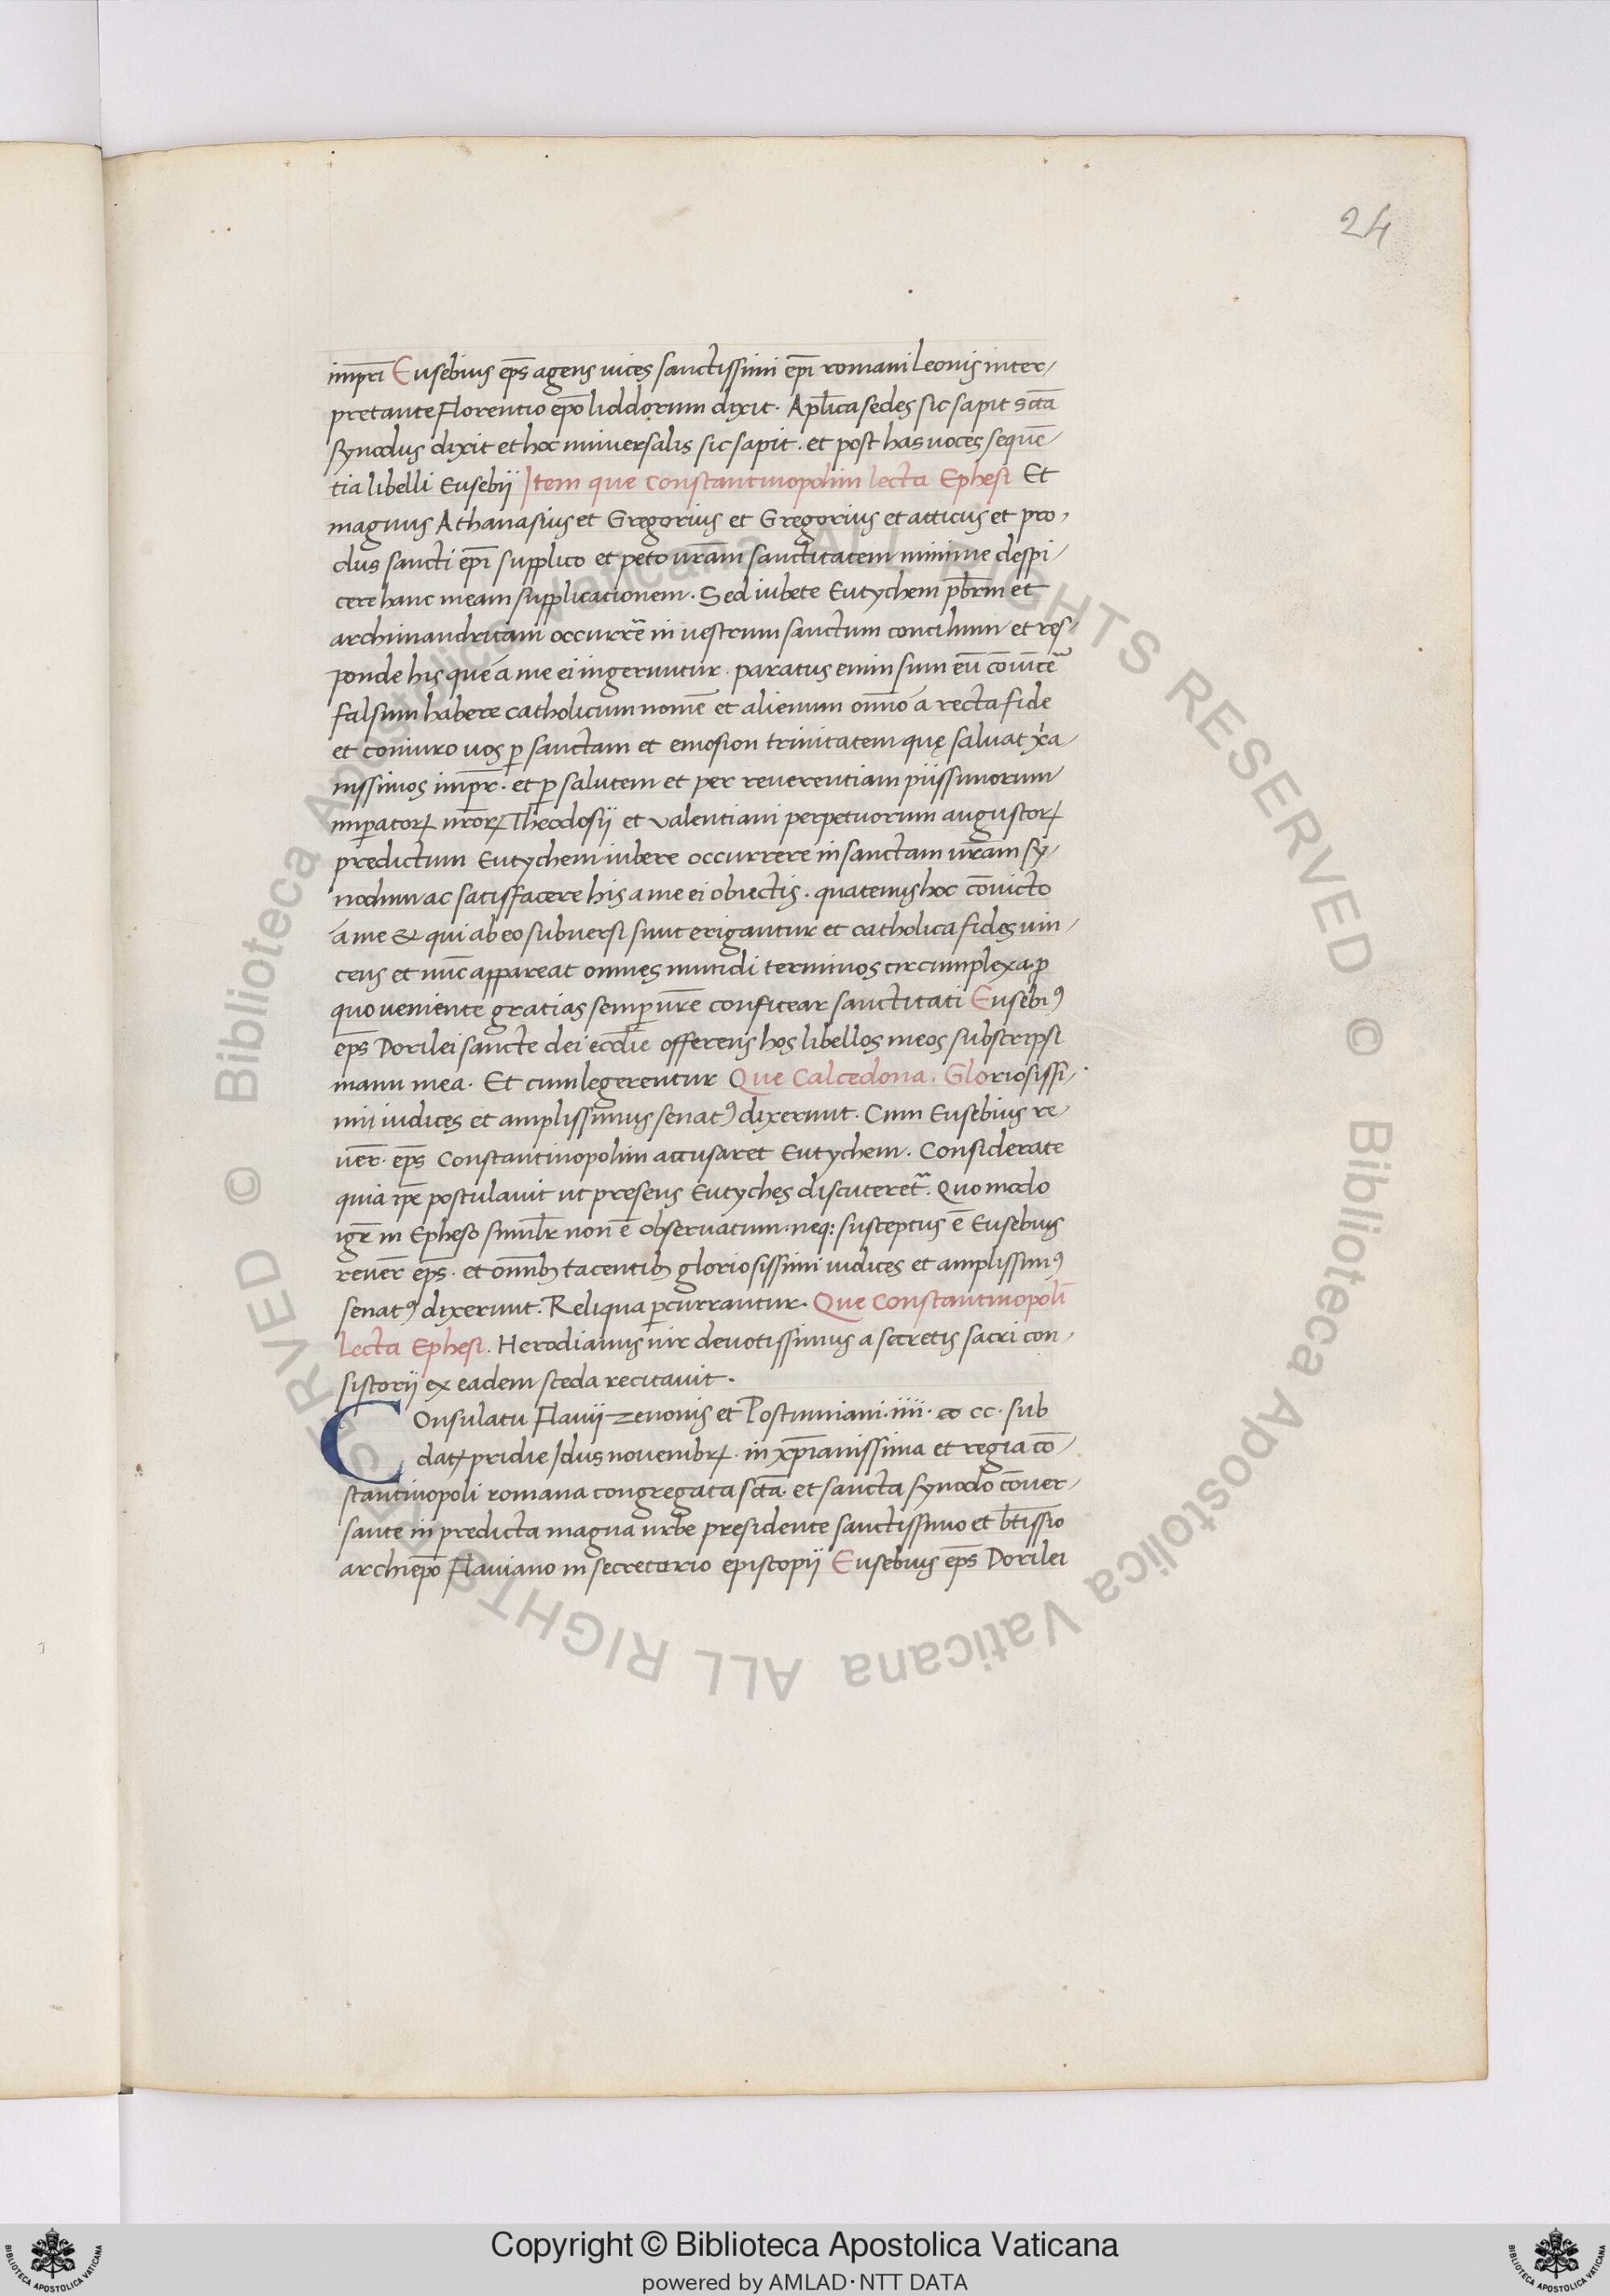 24
imp̄ri Eusebius ep̄s agens uices sanctissimi ep̄i romani Leonis inter-
pretante Florentio ep̄o liddorum dixit. Ap̄lica sedes sic sapit sc̄ta
synodus dixit et hoc uniuersalis sic sapit. et post has uoces sequē-
tia libelli Eusebij Item que Constantinopolim lecta Ephesi Et
magnus Athanasius et Gregorius et Gregorius et atticus et pro-
clus sancti ep̄i supplico et peto ur̄am sanctitatem minime despi-
cere hanc meam supplicationem. Sed iubete Eutychem pb̄rm et
archimandritam occurrē in uestrum sanctum concilium et res-
ponde his que a me ei ingeruntur. paratus enim sum eū cōuīcē
falsum habere catholicum nomē et alienum om̄o a recta fide
et coniuro uos p̱ sanctam et emosion trinitatem quę saluat xp̄a-
nissimos imp̄r. et p̱ salutem et per reuerentiam piissimorum
imp̱atoꝝ nr̄oꝝ Theodosij et Valentiani perpetuorum augustoꝝ
predictum Eutychem iubere occurrere in sanctam ur̄am sy-
nodum ac satisfacere his a me ei obiectis. quatenus hoc cōuicto
a me & qui ab eo subuersi sunt erigantur et catholica fides uin-
cens et nūc appareat omnes mundi terminos circumplexa. p̱
quo ueniente gratias semp̱ ur̄e confitear sanctitati Eusebiꝰ
ep̄s Dorilei sancte dei eccl̄ie offerens hos libellos meos subscripsi
manu mea. Et cum legerentur Que Calcedona. Gloriosissi-
mi iudices et amplissimus senatꝰ dixerunt. Cum Eusebius re-
uer̄. ep̄s Constantinopolim accusaret Eutychem. Considerate
quia ip̄e postulauit ut presens Eutyches discuteret̄. Quo modo
igr̄ in Epheso simil̄r non ē obseruatum. neq: susceptus ē Eusebius
reuer̄ ep̄s. et om̄ibꝫ tacentibꝫ gloriosissimi iudices et amplissimꝰ
senatꝰ dixerunt. Reliqua p̱currantur. Que Constantinopolī
lecta Ephesi. Herodianus uir deuotissimus a secretis sacri con-
sistorij ex eadem sceda recitauit.
Consulatu Flauij Zenonis et Postumiani. iiii. cc. sub
datꝝ pridie Idus nouembrꝝ. in xp̄ianissima et regia cō-
stantinopoli romana congregata sc̄ta. et sancta synodo cōuer-
sante in predicta magna urbe presidente sanctissimo et bt̄issīo
archiep̄o Flauiano in secretario episcopij Eusebius ep̄s Dorilei
© Biblioteca Apostolica Vaticana ALL RIGHTS RESERVED © Biblioteca Apostolica Vaticana ALL RIGHTS RESERVED
Copyright © Biblioteca Apostolica Vaticana
powered by AMLAD · NTT DATA
BIBLIOTECA APOSTOLICA VATICANA
BIBLIOTECA APOSTOLICA VATICANA